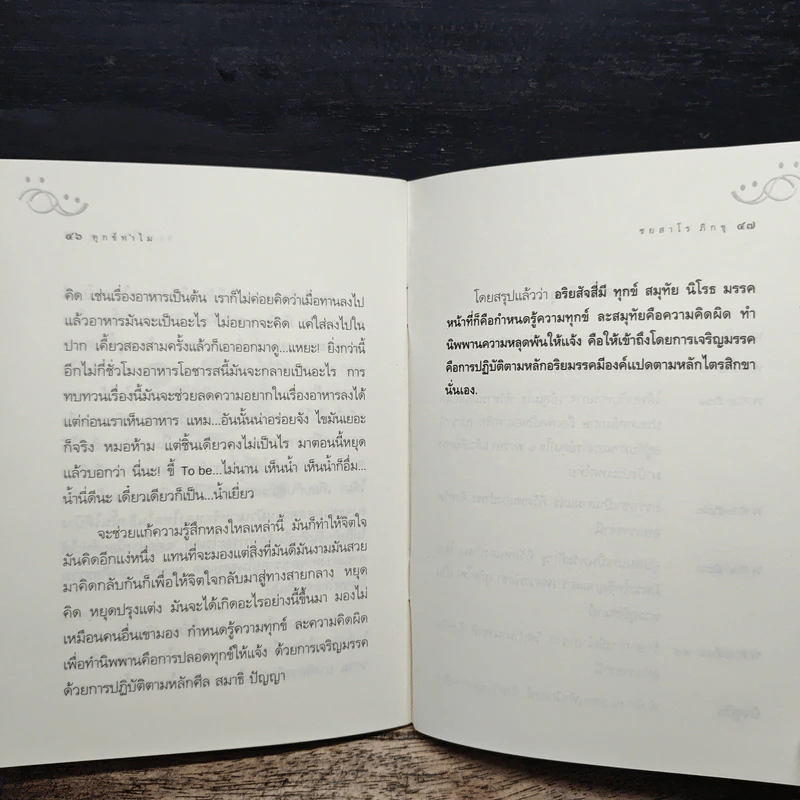 ๔๖ ทุกข์ทำไม
คิด เช่นเรื่องอาหารเป็นต้น เราก็ไม่ค่อยคิดว่าเมื่อทานลงไป
แล้วอาหารมันจะเป็นอะไร ไม่อยากจะคิด แต่ใส่ลงไปใน
ปาก เคี้ยวสองสามครั้งแล้วก็เอาออกมาดู...แหยะ! ยิ่งกว่านี้
อีกไม่กี่ชั่วโมงอาหารโอชารสนี้มันจะกลายเป็นอะไร การ
ทบทวนเรื่องนี้มันจะช่วยลดความอยากในเรื่องอาหารลงได้
แต่ก่อนเราเห็นอาหาร แหม...อันนั้นน่าอร่อยจัง ไขมันเยอะ
ก็จริง หมอห้าม แต่ชิ้นเดียวคงไม่เป็นไร มาตอนนี้หยุด
แล้วบอกว่า นี่นะ! ขี้ To be...ไม่นาน เห็นน้ำ เห็นน้ำก็อื่ม...
น้ำนี่ดีนะ เดี๋ยวเดียวก็เป็น...น้ำเยี่ยว
จะช่วยแก้ความรู้สึกหลงใหลเหล่านี้ มันก็ทำให้จิตใจ
มันคิดอีกแง่หนึ่ง แทนที่จะมองแต่สิ่งที่มันดีมันงามมันสวย
มาคิดกลับกันก็เพื่อให้จิตใจกลับมาสู่ทางสายกลาง หยุด
คิด หยุดปรุงแต่ง มันจะได้เกิดอะไรอย่างนี้ขึ้นมา มองไม่
เหมือนคนอื่นเขามอง กำหนดรู้ความทุกข์ ละความคิดผิด
เพื่อทำนิพพานคือการปลอดทุกข์ให้แจ้ง ด้วยการเจริญมรรค
ด้วยการปฏิบัติตามหลักศีล สมาธิ ปัญญา
ชยสาโร ภิกขุ ๔๗
โดยสรุปแล้วว่า อริยสัจสี่มี ทุกข์ สมุทัย นิโรธ มรรค
หน้าที่ก็คือกำหนดรู้ความทุกข์ ละสมุทัยคือความคิดผิด ทำ
นิพพานความหลุดพ้นให้แจ้ง คือให้เข้าถึงโดยการเจริญมรรค
คือการปฏิบัติตามหลักอริยมรรคมีองค์แปดตามหลักไตรสิกขา
นั่นเอง.